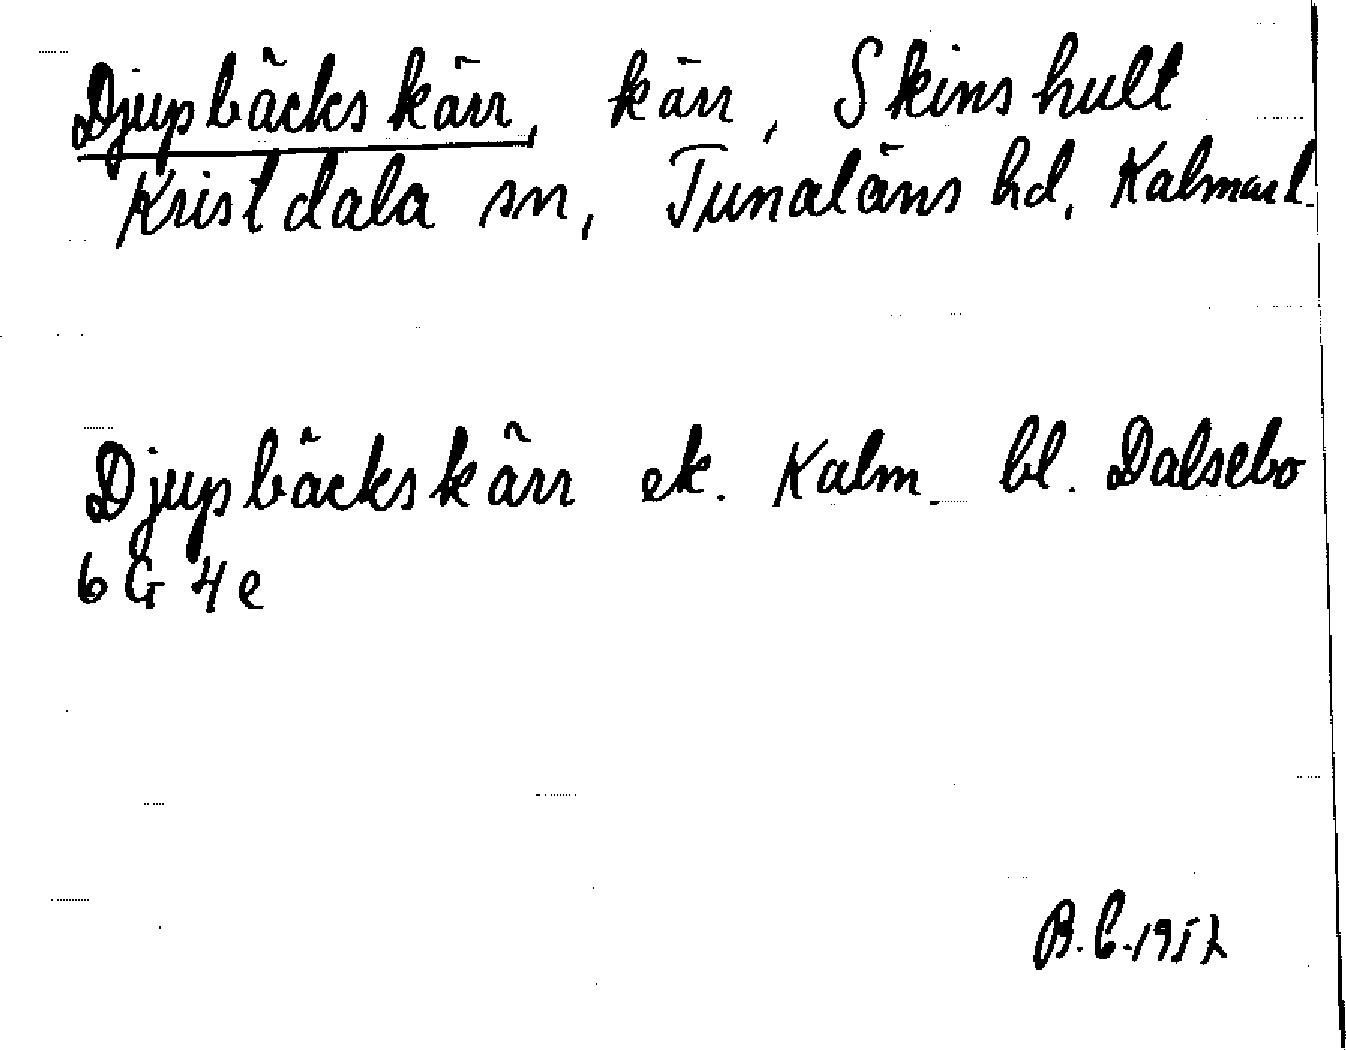 Djupbäckskärr, kärr, Skinshult
Kristdala sn, Tunaläns hd, Kalmar l.
Djupbäckskärr ek. Kalm. bl. Dalsebo
6 G 4 e
B.C. 1952